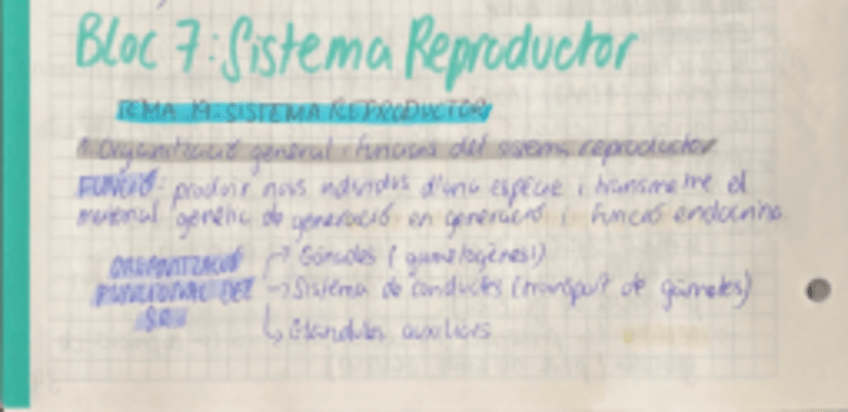 Bloc 7: Sistema Reproductor
TEMA 19. SISTEMA REPRODUCTOR
1. Organització general i funcions del sistema reproductor
FUNCIÓ: produir nous individus d'una espècie i transmetre el
material genètic de generació en generació i funció endocrina.
ORGANITZACIÓ FUNCIONAL DEL
→ Gònades (gametogènesi)
→ Sistema de conductes (transport de gàmetes)
→ Glàndules auxiliars